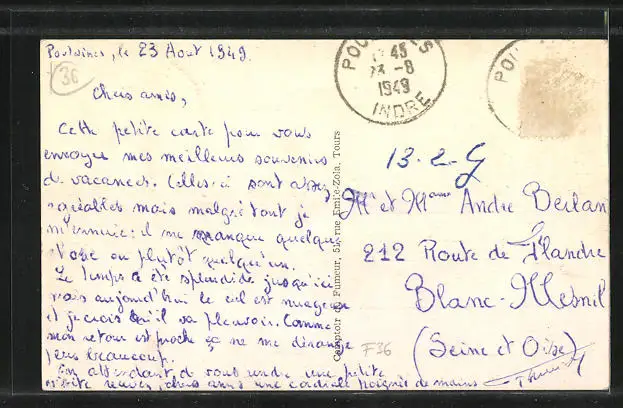 Poulaines, le 23 Aout 1949.
36
Chers amis,
Cette petite carte pour vous
envoyer mes meilleurs souvenirs
de vacances. Celles-ci sont assez
agréables mais malgré tout je
m'ennuie: il me manque quelque
chose ou plutôt quelqu'un.
Le temps a été splendide jusqu'ici
mais aujourd'hui le ciel est nuageux
et je crois qu'il va pleuvoir. Comme
mon retour est proche ça ne me dérange
pas beaucoup.
En attendant de vous rendre une petite
visite recevez, chers amis une cordiale poignée de mains
POULAINES
45
23 -8
1949
INDRE
POU
Comptoir du Fumeur, 55, rue Emile-Zola, Tours
13-2-G
Mr et Mme André Beilan
212 Route de Flandre
Blanc-Mesnil
(Seine et Oise)
F36